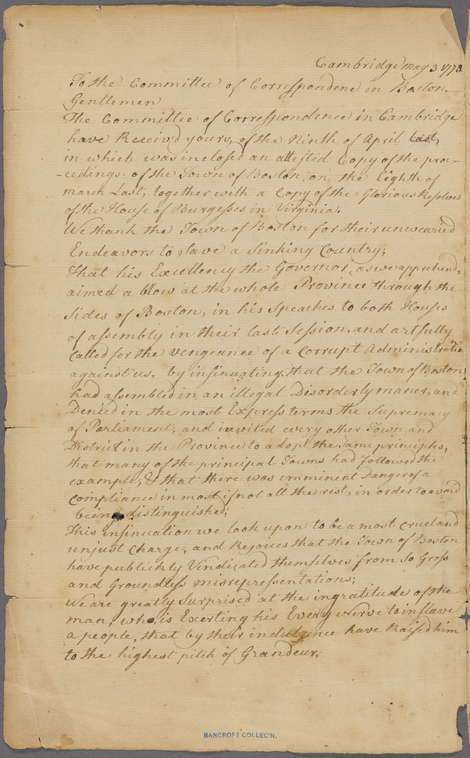 Cambridge May 3 1773
To the Committee of Correspondence in Boston
Gentlemen
The Committee of Correspondence in Cambridge
have Receivd yours, of the Ninth of April last,
in which was inclosed an attested Copy of the pro-
-cedings of the Town of Boston, on the Eighth of
march Last, together with a Copy of the Glorious Resolves
of the House of Burgesses in Virginia.
We thank the Town of Boston for their unwearied
Endeavors to save a Sinking Country;
That his Excellency the Governor, as we apprehend,
aimed a blow at the whole Province through the
Sides of Boston, in his Speaches to both Houses
of assembly in their last Session, and artfully
Called for the vengeance of a Corrupt Administratio
against us, by insinuating, that the Town of Boston
had assembled in an illegal Disorderly maner, and
Denied in the most Express terms the Supremacy
of Parliament, and invited every other Town and
District in the Province to adopt the same principles,
that many of the principal Towns had followed the
example, & that there was imminent danger of a
Compliance in most if not all the rest, in order to avoid
being distinguished;
This insinuation we look upon to be a most cruel and
unjust Charge, and Rejoice that the Town of Boston
have publickly Vindicated themselves from So Gross
and Groundless misrepresentations;
We are greatly Surprised at the ingratitude of the
man, who, is Exerting his Every nerve to inslave
a people, that by their indulgence have Raised him
to the highest pitch of Grandeur,
BANCROFT COLLEC'N.